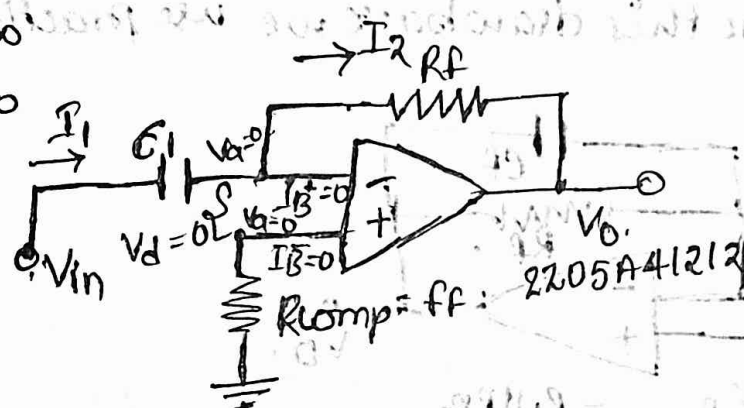 I2
Rf
I1
C1
Va=0
IB+=0
−
Vd=0
Va=0
+
IB-=0
Vin
V0.
2205A41212
Rcomp=ff: